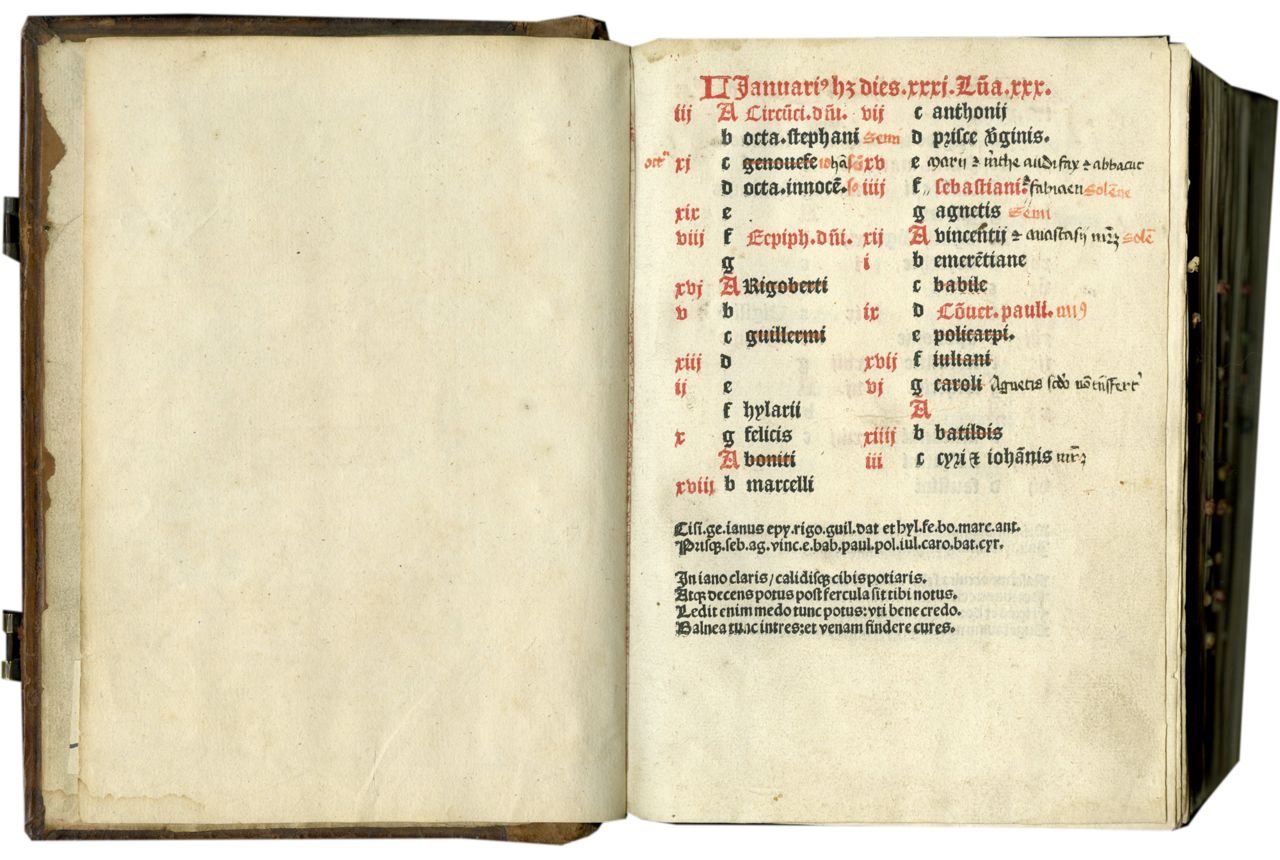 KL Januariꝰ hꝫ dies.xxxj.Lūa.xxx.
iij A Circūci.dn̄i.
b octa.stephani Semi
xj c genouefe
d octa.innocē.
xix e
viij f Ecpiph.dn̄i.
g
xvj A Rigoberti
v b
c guillermi
xiij d
ij e
f hylarii
x g felicis
A boniti
xviij b marcelli
vij c anthonij
d prisce v̄ginis.
xv e marij ⁊ audifax ⁊ abbacuc
iiij f sebastiani: fabiaen Solēne
g agnetis Semi
xij A vincentij ⁊ anastasij mr̄ꝫ Solē
i b emerētiane
c babile
ix d Cōuer.pauli.
e policarpi.
xvij f iuliani
vj g caroli Agnetis scdo
A
xiiij b batildis
iii c cyri ⁊ iohānis mr̄ꝫ
Cisi.ge.ianus epy.rigo.guil.dat et hyl.fe.bo.marc.ant.
Prisqꝫ.seb.ag.vinc.e.bab.paul.pol.iul.caro.bat.cyr.
In iano claris/calidisqꝫ cibis potiaris.
Atqꝫ decens potus post fercula sit tibi notus.
Ledit enim medo tunc potus:vti bene credo.
Balnea tunc intres:et venam findere cures.